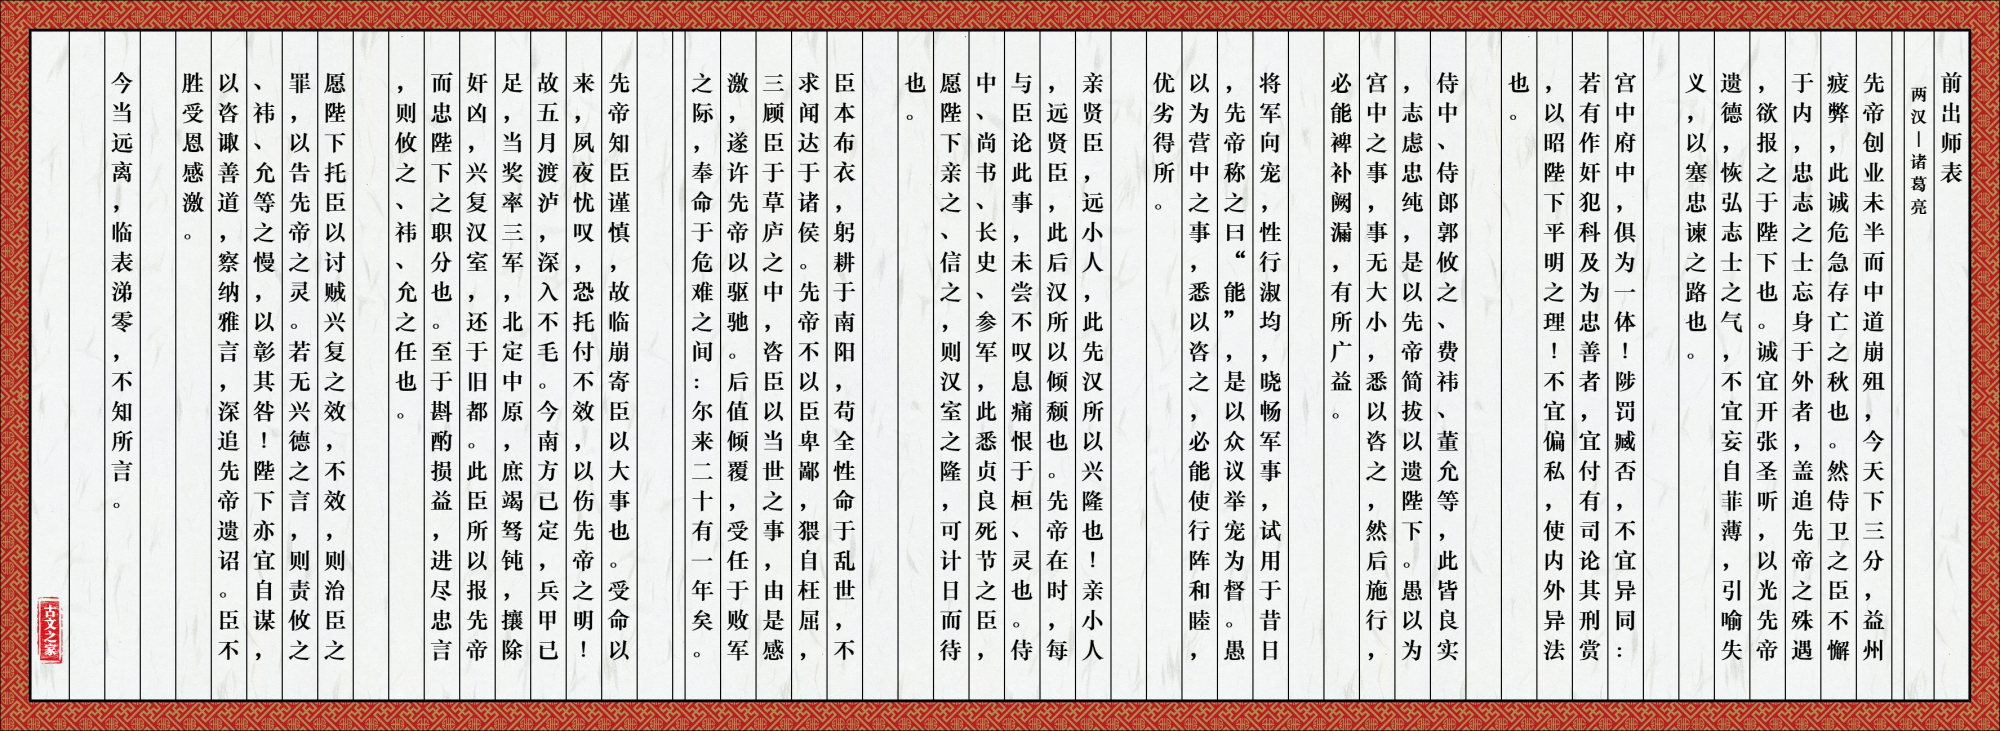 前出师表
两汉—诸葛亮
先帝创业未半而中道崩殂，今天下三分，益州
疲弊，此诚危急存亡之秋也。然侍卫之臣不懈
于内，忠志之士忘身于外者，盖追先帝之殊遇
，欲报之于陛下也。诚宜开张圣听，以光先帝
遗德，恢弘志士之气，不宜妄自菲薄，引喻失
义，以塞忠谏之路也。
宫中府中，俱为一体！陟罚臧否，不宜异同：
若有作奸犯科及为忠善者，宜付有司论其刑赏
，以昭陛下平明之理！不宜偏私，使内外异法
也。
侍中、侍郎郭攸之、费祎、董允等，此皆良实
，志虑忠纯，是以先帝简拔以遗陛下。愚以为
宫中之事，事无大小，悉以咨之，然后施行，
必能裨补阙漏，有所广益。
将军向宠，性行淑均，晓畅军事，试用于昔日
，先帝称之曰“能”，是以众议举宠为督。愚
以为营中之事，悉以咨之，必能使行阵和睦，
优劣得所。
亲贤臣，远小人，此先汉所以兴隆也！亲小人
，远贤臣，此后汉所以倾颓也。先帝在时，每
与臣论此事，未尝不叹息痛恨于桓、灵也。侍
中、尚书、长史、参军，此悉贞良死节之臣，
愿陛下亲之、信之，则汉室之隆，可计日而待
也。
臣本布衣，躬耕于南阳，苟全性命于乱世，不
求闻达于诸侯。先帝不以臣卑鄙，猥自枉屈，
三顾臣于草庐之中，咨臣以当世之事，由是感
激，遂许先帝以驱驰。后值倾覆，受任于败军
之际，奉命于危难之间：尔来二十有一年矣。
先帝知臣谨慎，故临崩寄臣以大事也。受命以
来，夙夜忧叹，恐托付不效，以伤先帝之明！
故五月渡泸，深入不毛。今南方已定，兵甲已
足，当奖率三军，北定中原，庶竭驽钝，攘除
奸凶，兴复汉室，还于旧都。此臣所以报先帝
而忠陛下之职分也。至于斟酌损益，进尽忠言
，则攸之、祎、允之任也。
愿陛下托臣以讨贼兴复之效，不效，则治臣之
罪，以告先帝之灵。若无兴德之言，则责攸之
、祎、允等之慢，以彰其咎！陛下亦宜自谋，
以咨诹善道，察纳雅言，深追先帝遗诏。臣不
胜受恩感激。
今当远离，临表涕零，不知所言。
古文之家